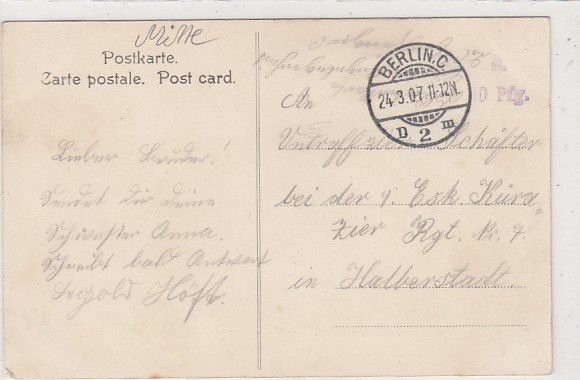 Mitte
Postkarte.
Carte postale. Post card.
BERLIN, C.
24.3.07.11-12N.
D 2 m
0 Pfg.
An
Schäfter
bei der 4. Esk. Küra-
zier Rgt. Nr. 7.
in Halberstadt.
Lieber Bruder!
Sendet dir deine
Schwester Anna.
Schreibt bald Antwort
Höft.